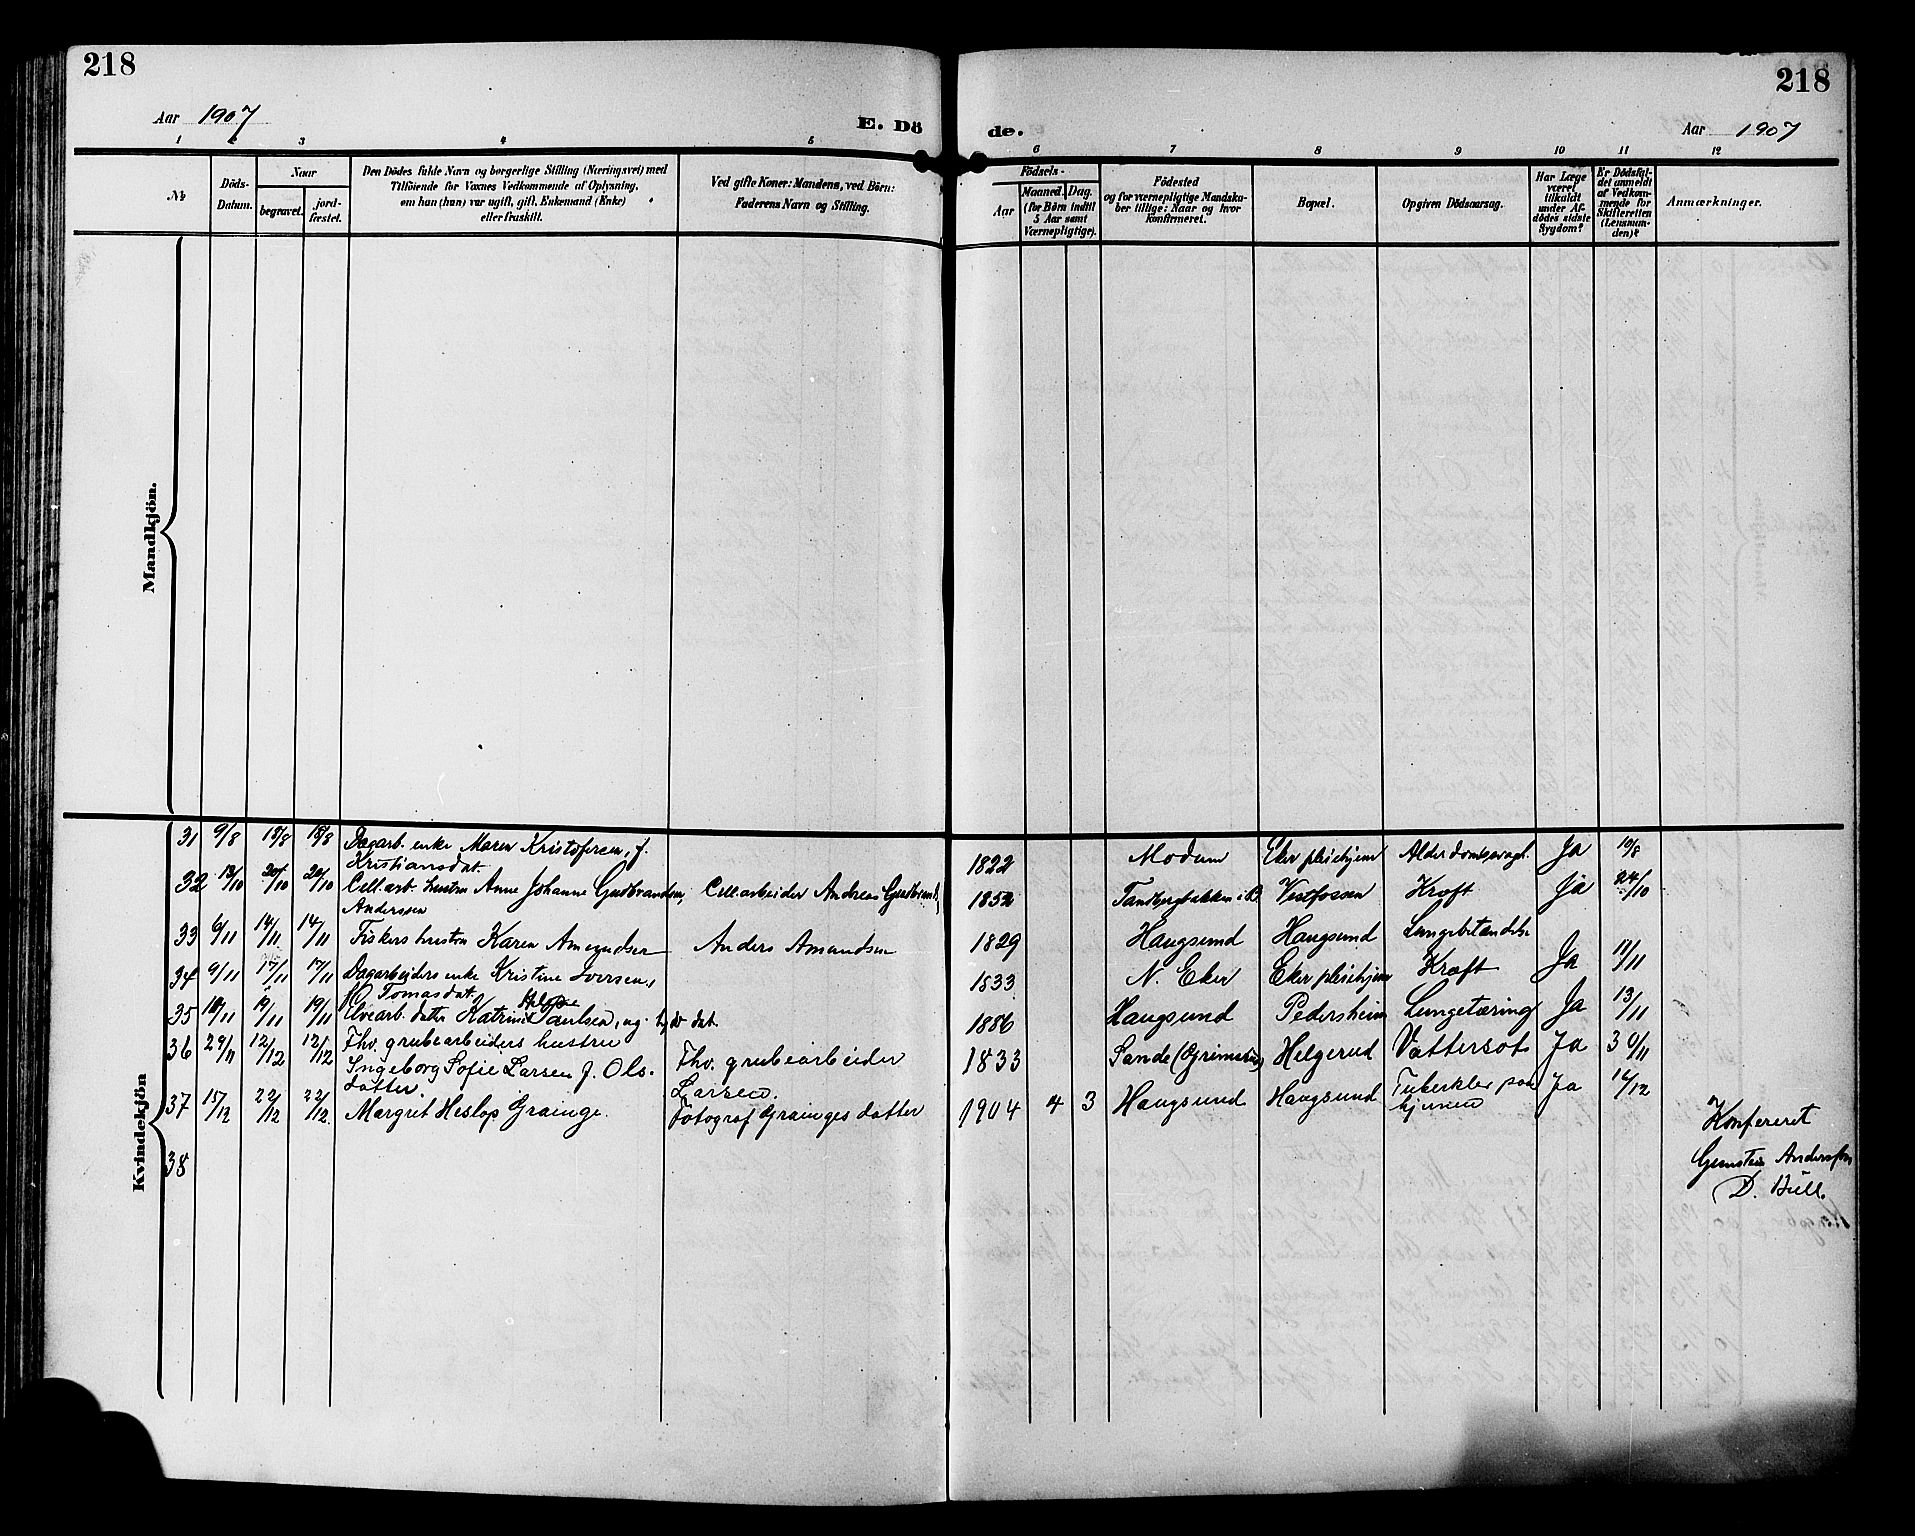 218
218
Aar 1907
E. Dö
de.
Aar 1907
1 2 3 4 5 6 7 8 9 10 11 12
№
Döds-
Datum.
Naar
begravet.
jord-
fæstet.
Den Dödes fulde Navn og borgerlige Stilling (Næringsvei) med
Tilföiende for Voxnes Vedkommende af Oplysning,
om han (hun) var ugift, gift, Enkemand (Enke)
eller fraskilt.
Ved gifte Koner: Mandens, ved Börn:
Faderens Navn og Stilling.
Födsels-
Aar
Maaned. Dag.
(for Børn indtil
5 Aar samt
Værnepligtige).
Födested
og for værnepligtige Mandska-
ber tillige: Naar og hvor
Konfirmeret.
Bopæl.
Opgiven Dödsaarsag.
Har Læge
været
tilkaldt
under Af-
dødes sidste
Sygdom?
Er Dödsfal-
det anmeldt
af Vedkom-
mende for
Skifteretten
(Lensman-
den)?
Anmærkninger.
Mandkjön.
Kvindekjön
31 9/8 13/8 13/8 Dagarb. enke Maren Kristofersen, f.
Kristiansdat. 1822 Modum Eker pleiehjem Ja 10/8
32 13/10 20/10 20/10 Cell.arb. hustru Anne Johanne Gudbrandsen, Cell.arbeider Andreas
Anderssen 1852 Vestfossen Kræft Ja 24/10
33 6/11 14/11 14/11 Fiskers hustru Karen Amundsen Anders Amundsen 1829 Haugsund Haugsund Lungebetændelse
34 9/11 17/11 17/11 Dagarbeiders enke Kristine Iversen,
Tomasdat. 1833 N. Eker Eker pleiehjem Kræft Ja 11/11
35 10/11 19/11 19/11 Elvearb. datter Katrine Paulsen, ug. 1886 Haugsund Pedersheim Lungetæring Ja 13/11
36 29/11 12/12 12/12 Fhv. grubearbeiders hustru
Ingeborg Sofie Larsen f. Ols-
datter. Fhv. grubearbeider
Larsen. 1833 Sande Helgerud Vattersot Ja 30/11
37 15/12 22/12 22/12 Margret Heslop Grainge. Fotograf Grainges datter 1904 4 3 Haugsund Haugsund Tuberkler paa
hjernen Ja 16/12
38
Konfereret
D. Bull.